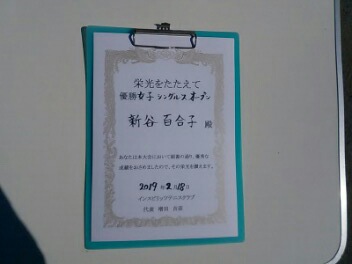 栄光をたたえて
優勝 女子シングルスオープン
新谷 百合子 殿
あなたは本大会において頭書の通り、優秀な
成績をおさめましたので、その栄光を讃えます。
2019年2月18日
インスピリッツテニスクラブ
代表 増田 吉彦